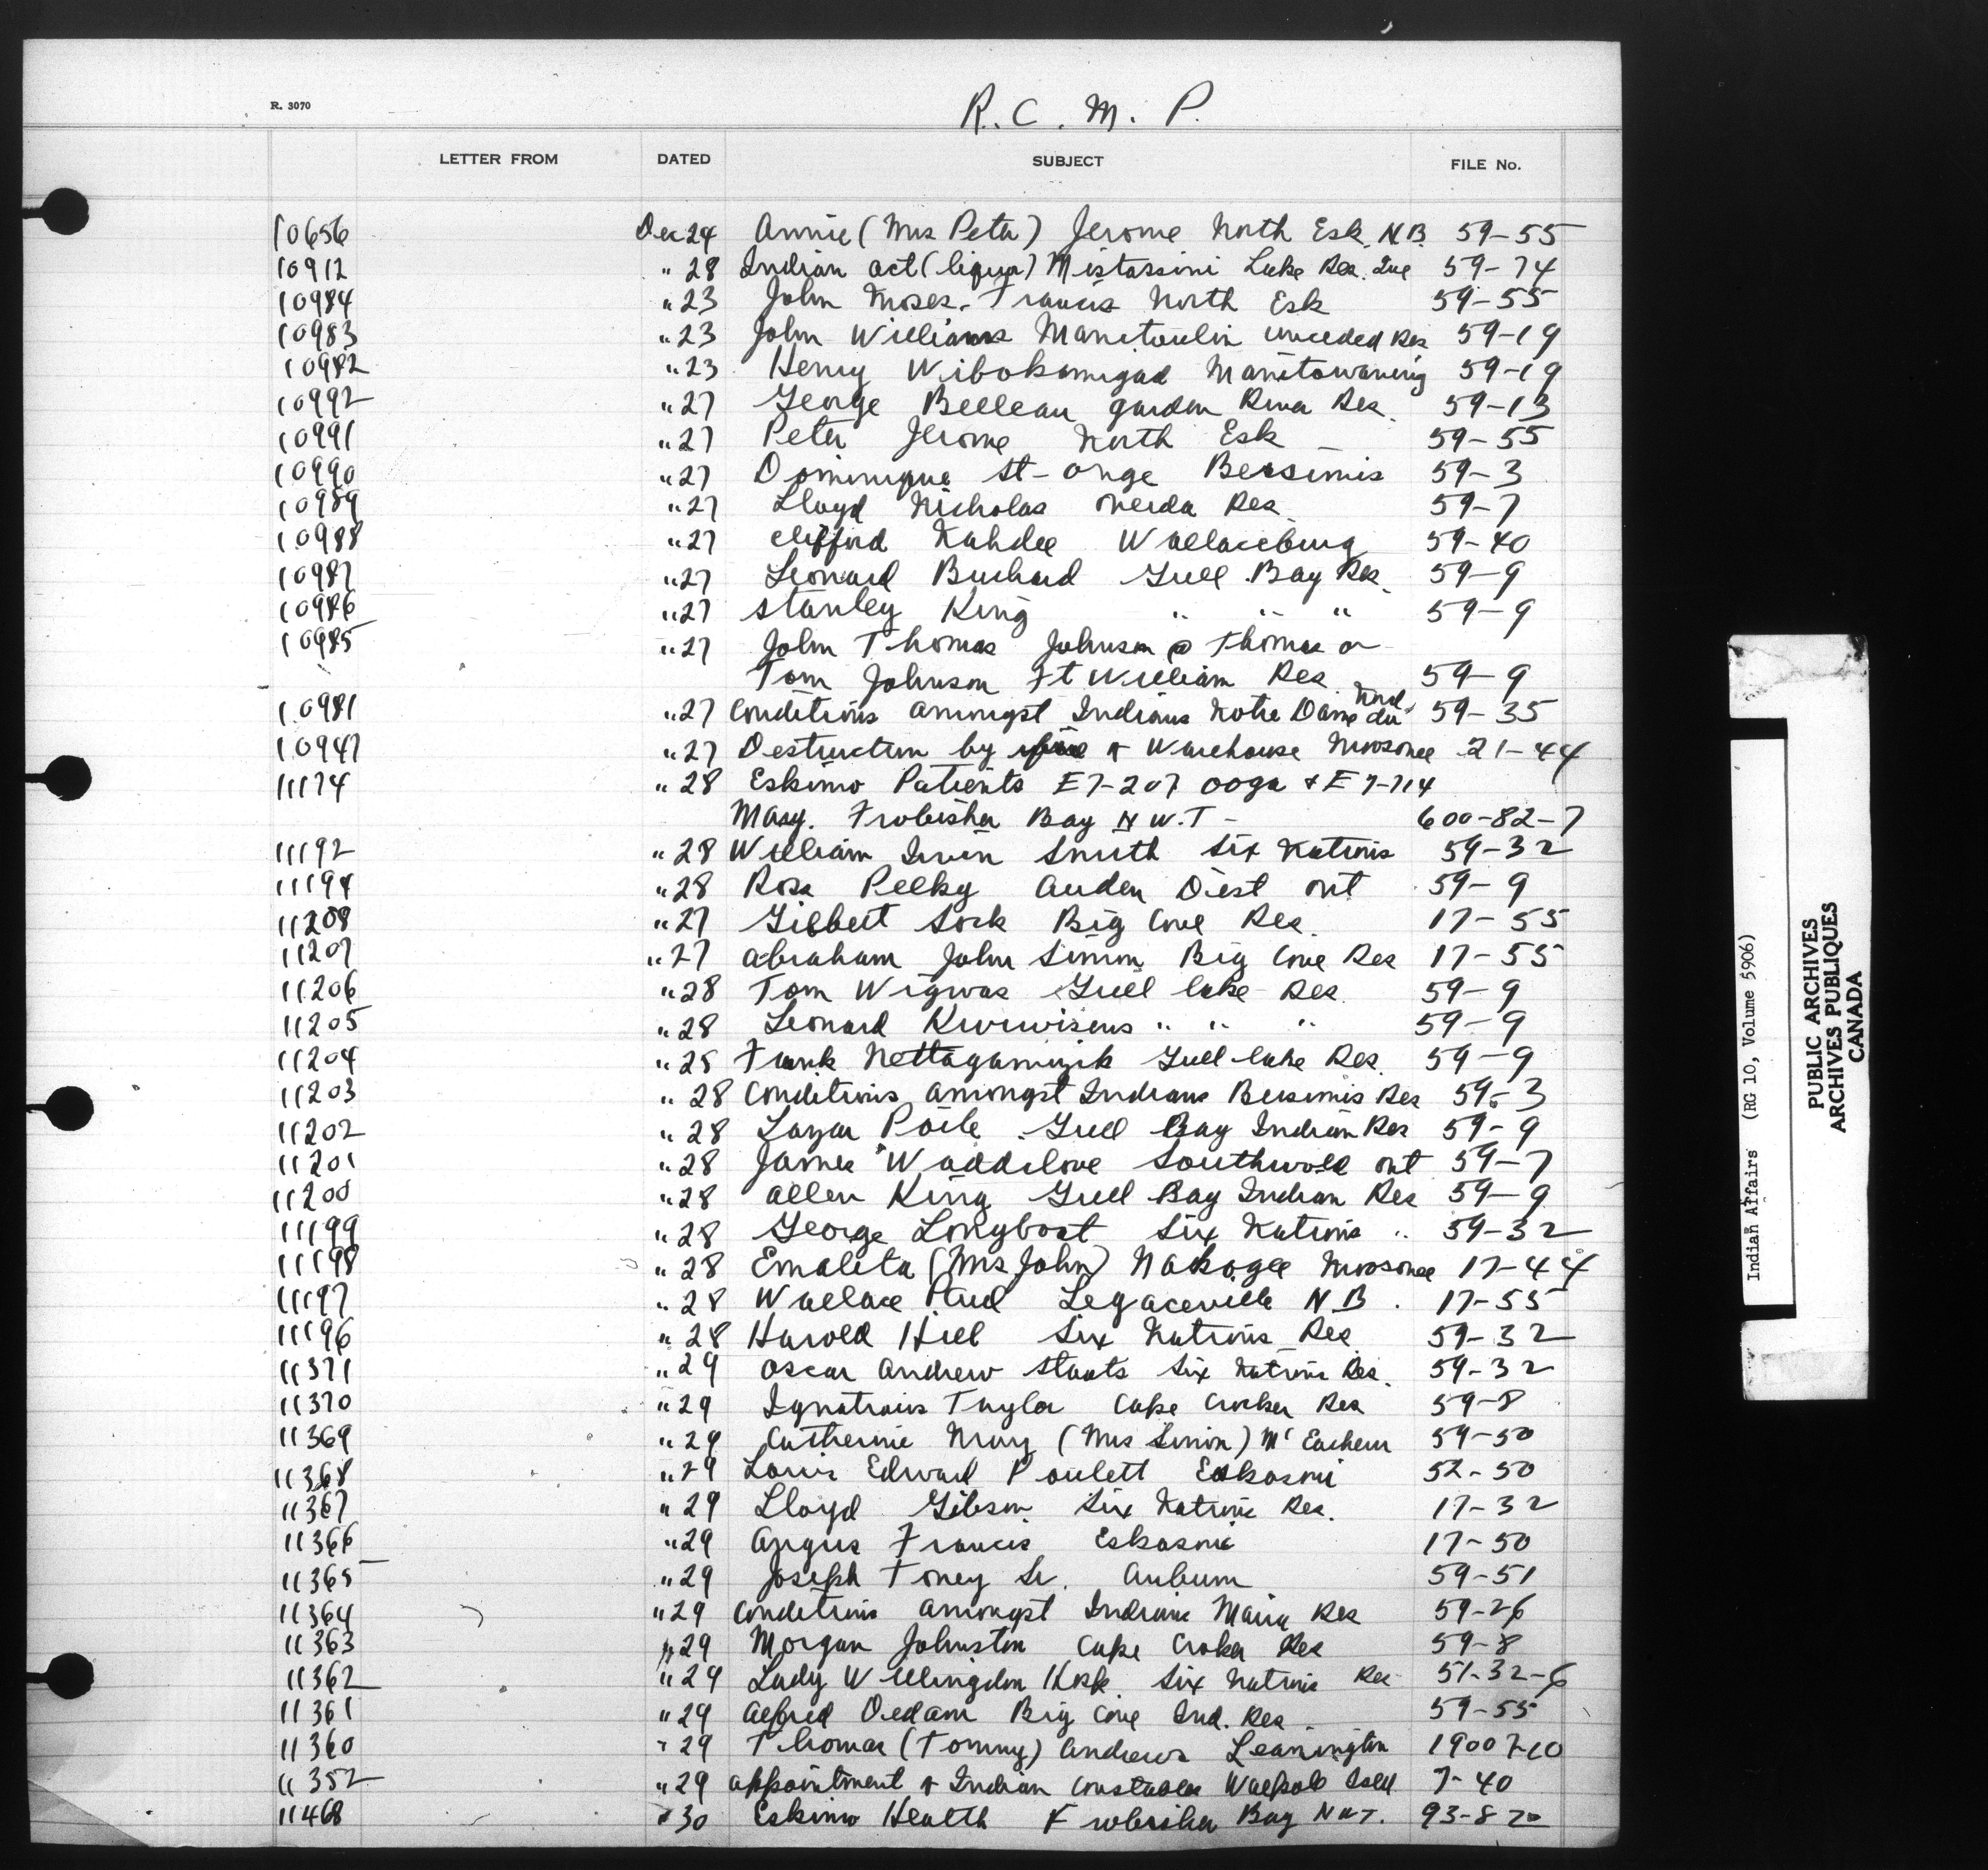 R. 3070
R. C. M. P.
LETTER FROM DATED SUBJECT FILE No.
10656 Dec 24 Annie (Mrs Peter) Jerome North Esk. N.B. 59-55
10912 " 28 Indian act (liquor) Mistassini Lake Res. Que 59-74
10984 " 23 John Moses. Francis North Esk 59-55
10983 " 23 John Williams Manitoulin unceded Res 59-19
10982 " 23 Henry Wibokamigad Manitowaning 59-19
10992 " 27 George Belleau Garden River Res. 59-13
10991 " 27 Peter Jerome North Esk 59-55
10990 " 27 Dominique St-Onge Bersimis 59-3
10989 " 27 Lloyd Nicholas Oneida Res 59-7
10988 " 27 Clifford Kahdee Wallaceburg 59-40
10987 " 27 Leonard Buchard Gull Bay Res. 59-9
10986 " 27 Stanley King " " " 59-9
10985 " 27 John Thomas Johnson @ Thomas or
Tom Johnson Ft William Res. 59-9
10981 " 27 Conditions amongst Indians Notre Dame du Nord. 59-35
10947 " 27 Destruction by fire of Warehouse Moosonee 21-44
11174 " 28 Eskimo Patients E7-207 Ooga & E7-714
Mary. Frobisher Bay N.W.T - 600-82-7
11192 " 28 William Irvin Smith Six Nations 59-32
11194 " 28 Rosa Pelky Auden Dist Ont 59-9
11208 " 27 Gilbert Sock Big Cove Res. 17-55
11207 " 27 Abraham John Simon Big Cove Res 17-55
11206 " 28 Tom Wigwas Gull Lake Res. 59-9
11205 " 28 Leonard Kwiwisens " " " 59-9
11204 " 28 Frank Nettagamizik Gull Lake Res. 59-9
11203 " 28 Conditions amongst Indians Bersimis Res 59-3
11202 " 28 Poile Gull Bay Indian Res 59-9
11201 " 28 James Waddilove Southwold Ont 59-7
11200 " 28 Allen King Gull Bay Indian Res 59-9
11199 " 28 George Longboat Six Nations " 59-32
11198 " 28 Emaleta (Mrs John) Nakogee Moosonee 17-44
11197 " 28 Wallace Paul Legaceville N.B. 17-55
11196 " 28 Harold Hill Six Nations Res 59-32
11371 " 29 Oscar Andrew Staats Six Nations Res. 59-32
11370 " 29 Ignatious Taylor Cape Croker Res 59-8
11369 " 29 Catherine Mary (Mrs Simon) McEachern 59-50
11368 " 29 Louis Edward Poulett Eskasoni 52-50
11367 " 29 Lloyd Gibson Six Nations Res. 17-32
11366 " 29 Angus Francis Eskasoni 17-50
11365 " 29 Joseph Toney Sr. Auburn 59-51
11364 " 29 Conditions amongst Indians Maria Res 59-26
11363 " 29 Morgan Johnston Cape Croker Res 59-8
11362 " 29 Lady Willingdon Hosp Six Nations Res 51-32-6
11361 " 29 Alfred Dedam Big Cove Ind. Res. 59-55
11360 " 29 Thomas (Tommy) Andrews Leamington 19007-10
11352 " 29 Appointment of Indian Constables Walpole Isld 7-40
11468 " 30 Eskimo Health Frobisher Bay N.W.T. 93-82
Indian Affairs (RG 10, Volume 5906)
PUBLIC ARCHIVES
ARCHIVES PUBLIQUES
CANADA